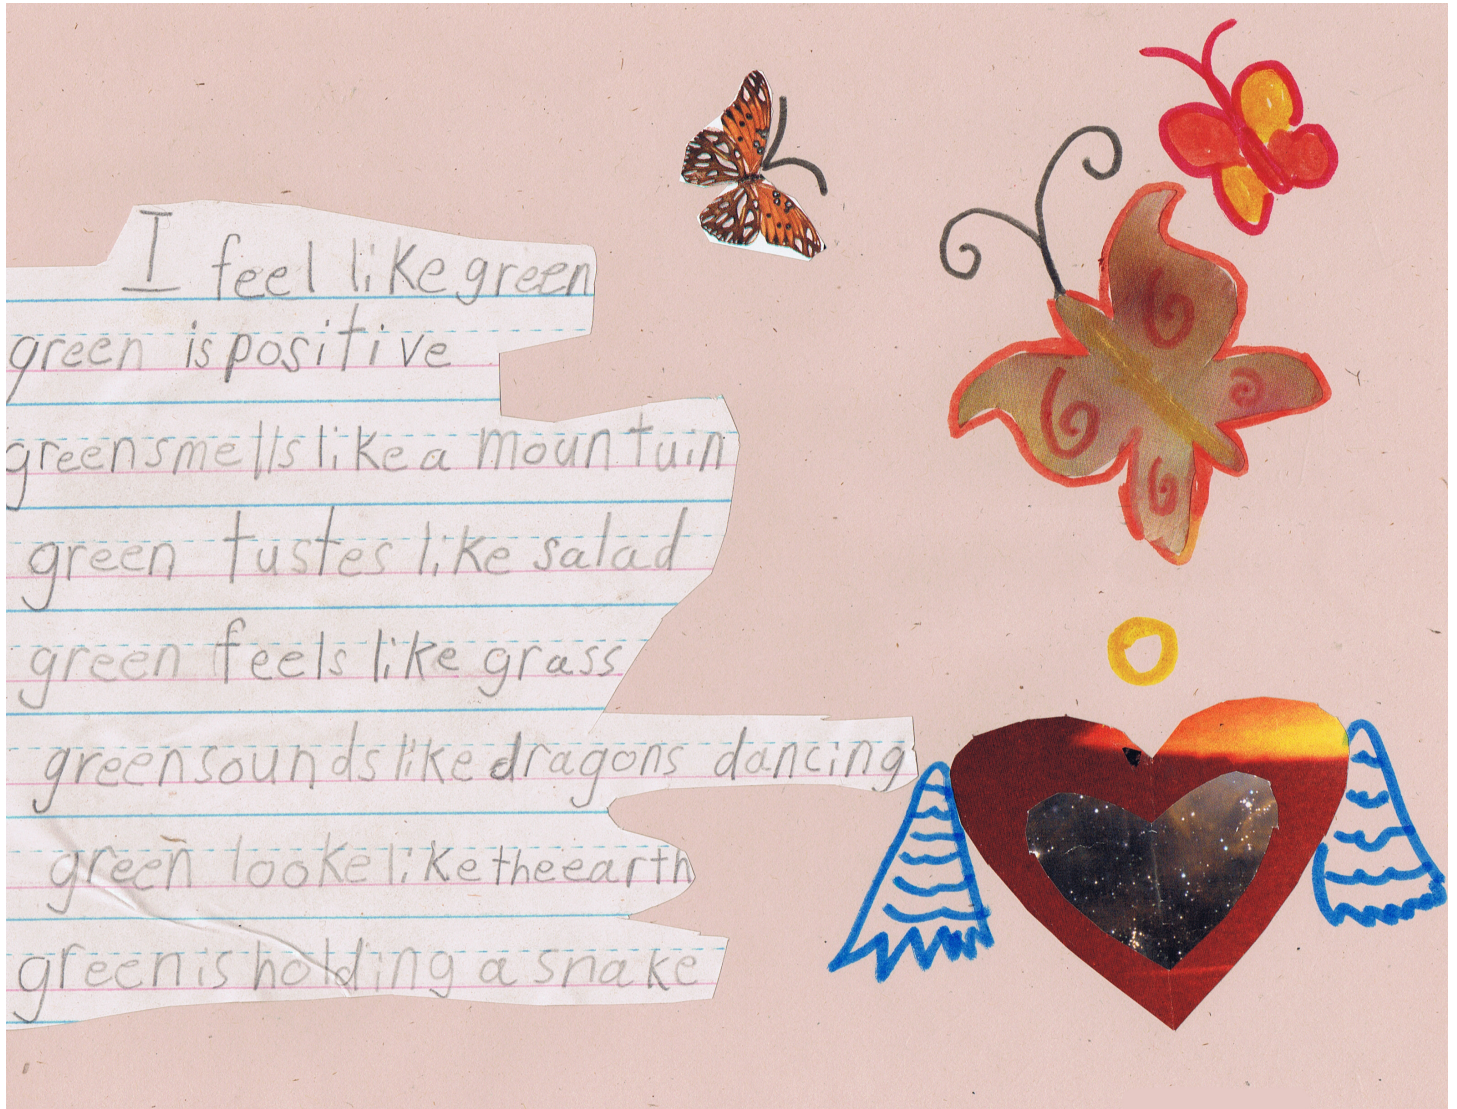 I feel like green
green is positive
green smells like a mountuin
green tustes like salad
green feels like grass
green sounds like dragons dancing
green looke like the earth
green is holding a snake